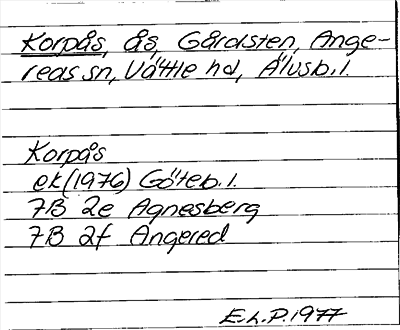 Korpås, ås, Gårdsten, Ange-
reds sn, Vättle hd, Älvsb. l.
Korpås
ek (1976) Göteb. l.
7B 2e Agnesberg
7B 2f Angered
E.L.P. 1977